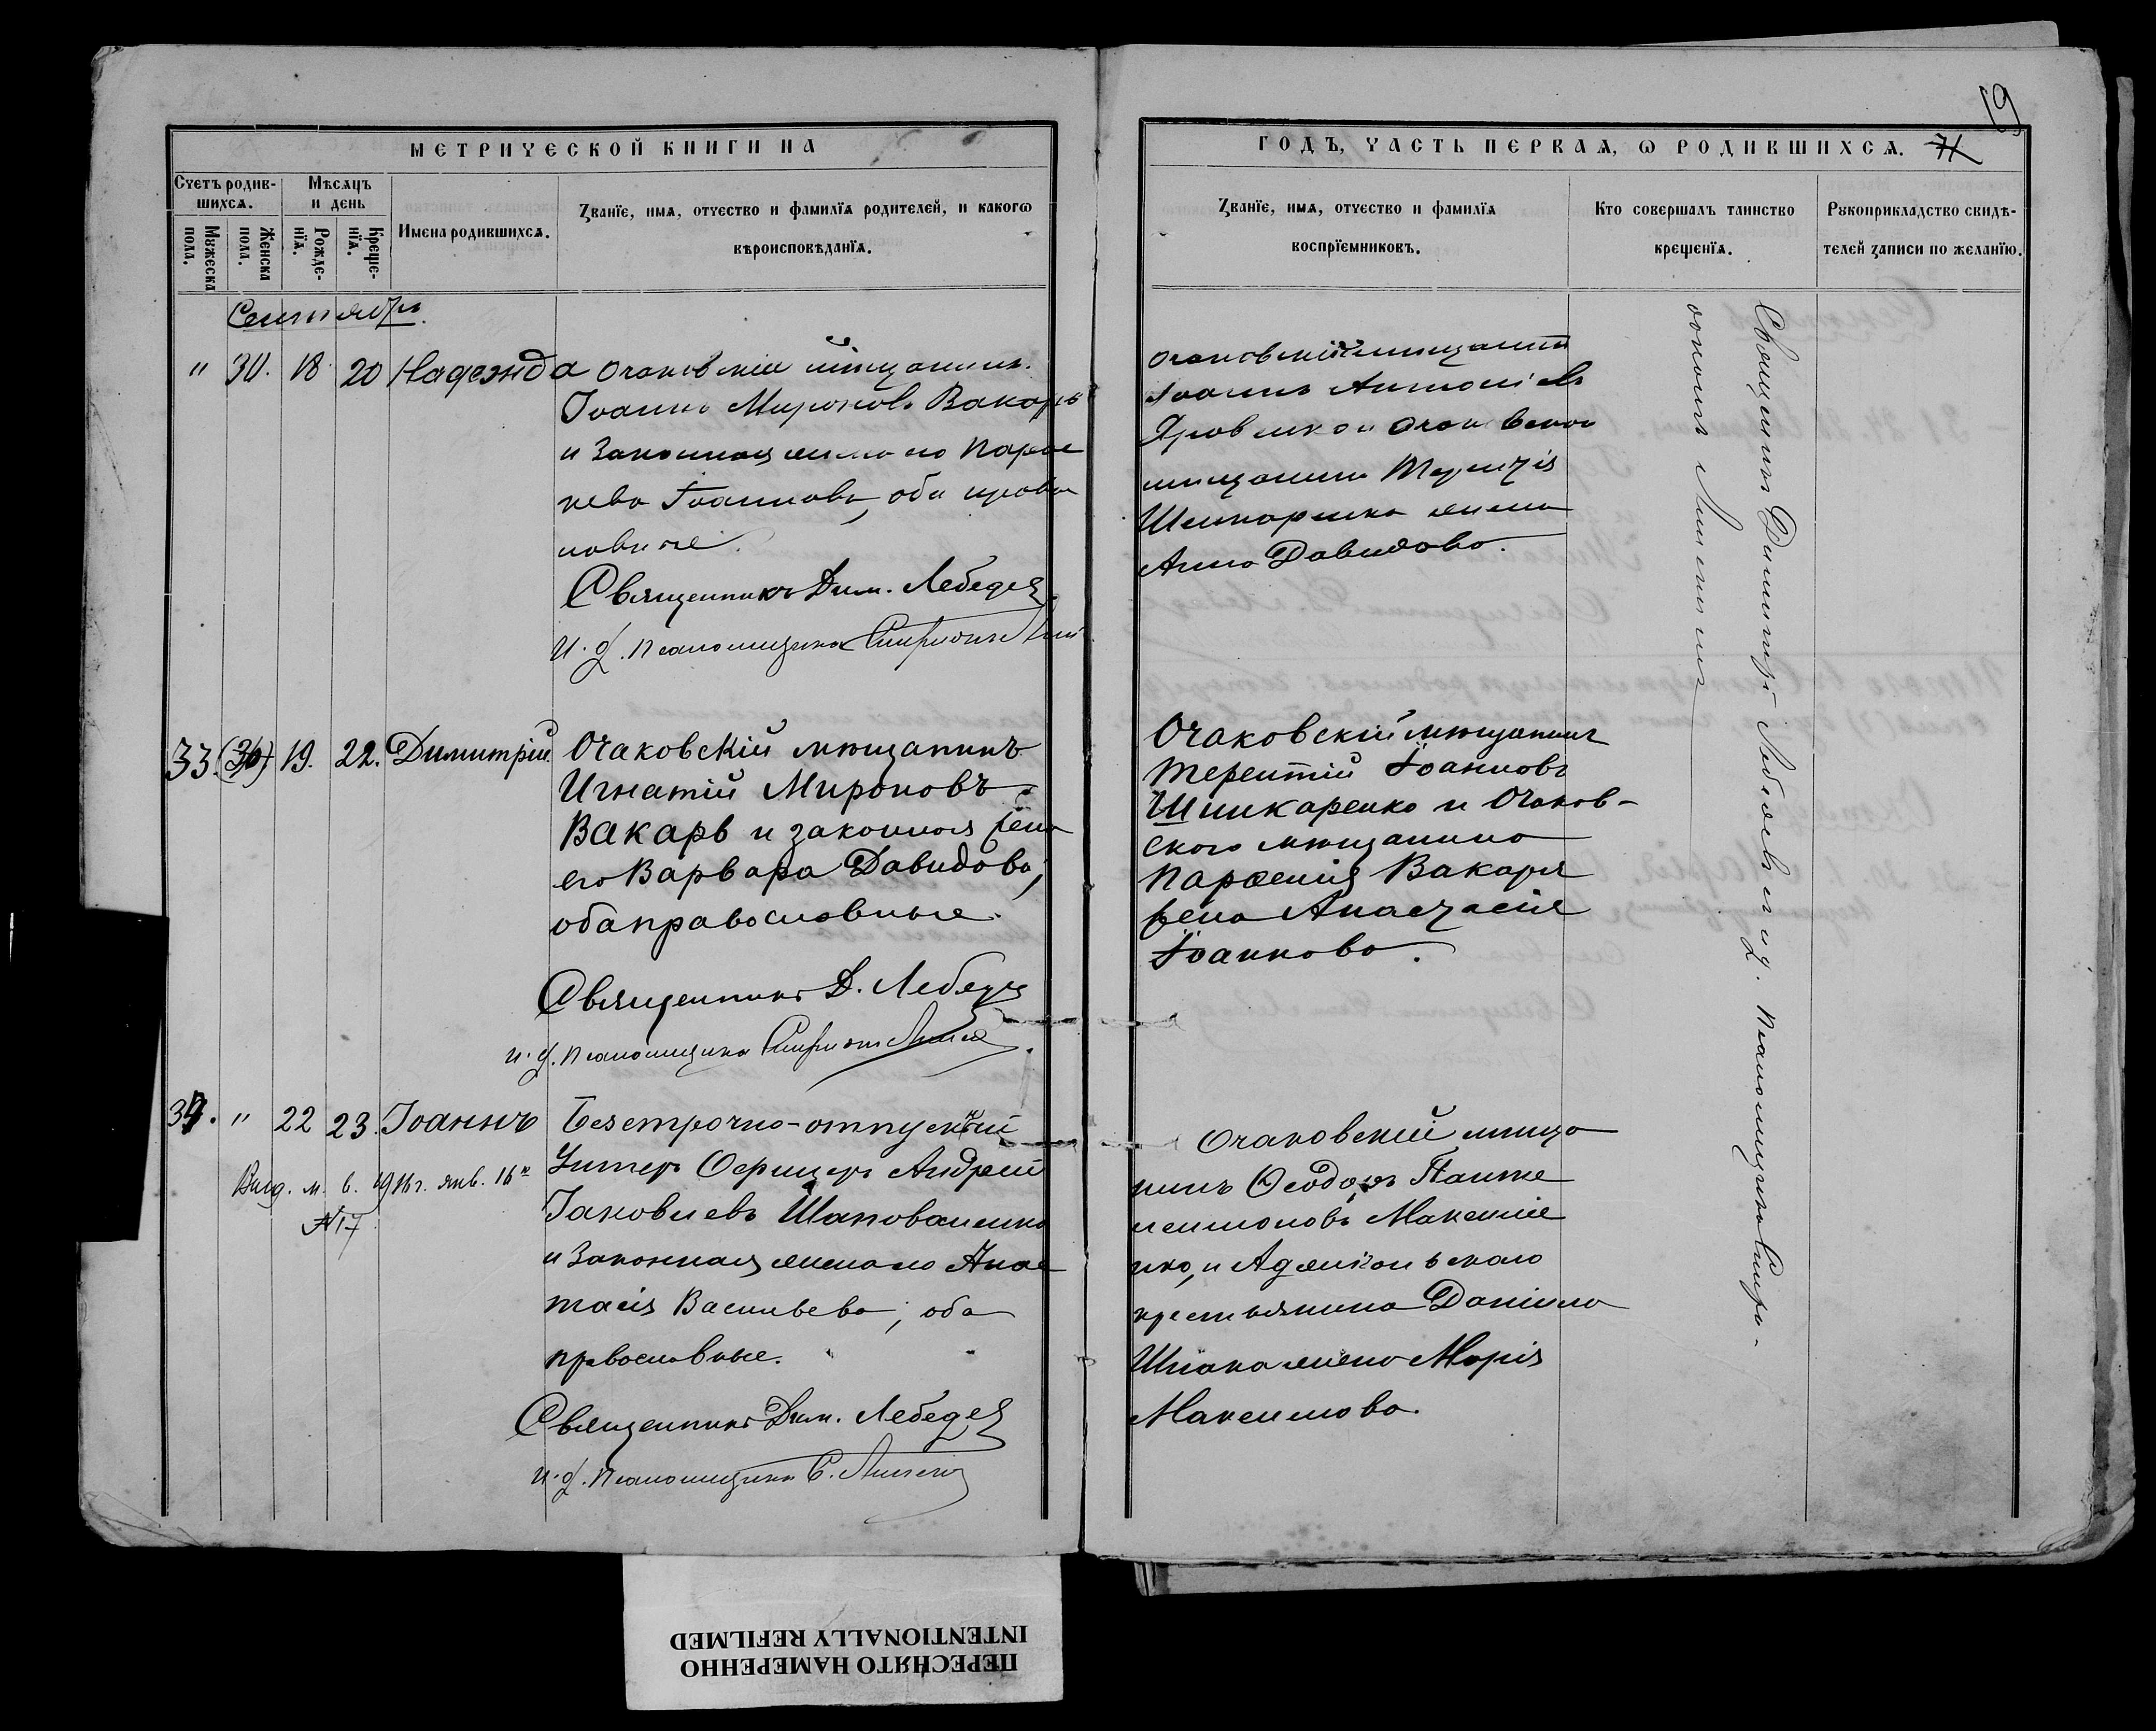 19
МЕТРИЧЕСКОЙ КНИГИ НА
ГОДЪ, ЧАСТЬ ПЕРВАѦ, Ѡ РОДИВШИХСѦ. 71
Счетъ родив-
шихсѧ.
Мѣсѧцъ
и день
Мꙋжеска
пола.
Женска
пола.
Рожде-
нїѧ.
Креще-
нїѧ.
Имена родившихсѧ.
Званїе, имѧ, отчество и фамилїѧ родителей, и какогѡ
вѣроисповѣданїѧ.
Званїе, имѧ, отчество и фамилїѧ
воспрїемниковъ.
Кто совершалъ таинство
крещенїѧ.
Рꙋкоприкладство свидѣ-
телей записи по желанїю.
Сентябрь.
" 30. 18 20 Надежда
Очаковскій мѣщанинъ
Іоаннъ Мироновъ Вакарь
и законная жена его Парас
кева Іоаннова, оба право
славные.
Священникъ Дим. Лебедев
и. д. псаломщика Спиридонъ
Очаковскій мѣщанинъ
Іоаннъ
и Очаковскаго
мѣщанина Терентія
Шинкаренка жена
Анна Давидова.
Священникъ Димитрій Лебедевъ и и. д. псаломщика Спири-
донъ
33. (36) 19. 22. Димитрій.
Очаковскій мѣщанинъ
Игнатій Мироновъ
Вакарь и законная жена
его Варвара Давидова,
оба православные.
Священникъ Д. Лебедев
и. д. псаломщика Спиридонъ
Очаковскій мѣщанинъ
Терентій Іоанновъ
Шинкаренко и Очаков-
скаго мѣщанина
Парѳенія Вакаря
жена Анастасія
Іоаннова.
34. " 22 23. Іоаннъ
Выд. м. в. 1916 г. янв. 16
№17
Безсрочно-отпускный
Унтеръ Офицеръ Андрей
Іаковлевъ Шаповаленко
и законная жена его Анас
тасія Васильева; оба
православные.
Священникъ Дим. Лебедев
и. д. псаломщика С.
Очаковскій мѣща
нинъ Ѳеодоръ Панте
леимоновъ Максиме
нко, и Аджигольскаго
крестьянина Даніила
Шпака жена Марія
Максимова.
ПЕРЕСНЯТО НАМЕРЕННО
INTENTIONALLY REFILMED